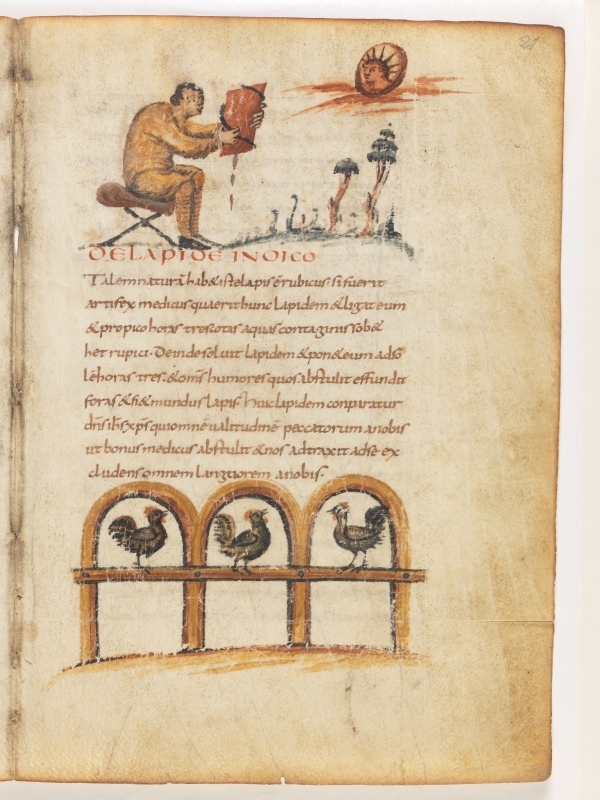 21
DE LAPIDE INDICO
Talem naturā hab& iste lapis ē rubicus. si fuerit
artifex medicus quaerit hunc lapidem & ligat eum
& pro pico horas tres totas aquas contaginis sob&
het rupici. Deinde soluit lapidem & pon& eum ad so
lē horas tres. & om̄s humores quos abstulit effundit
foras & fi& mundus lapis. Hunc lapidem conparatur
dn̄s ih̄s xp̄s qui omnē ualitudinē peccatorum a nobis
ut bonus medicus abstulit & nos adtraxit ad se ex
cludens omnem languorem a nobis.